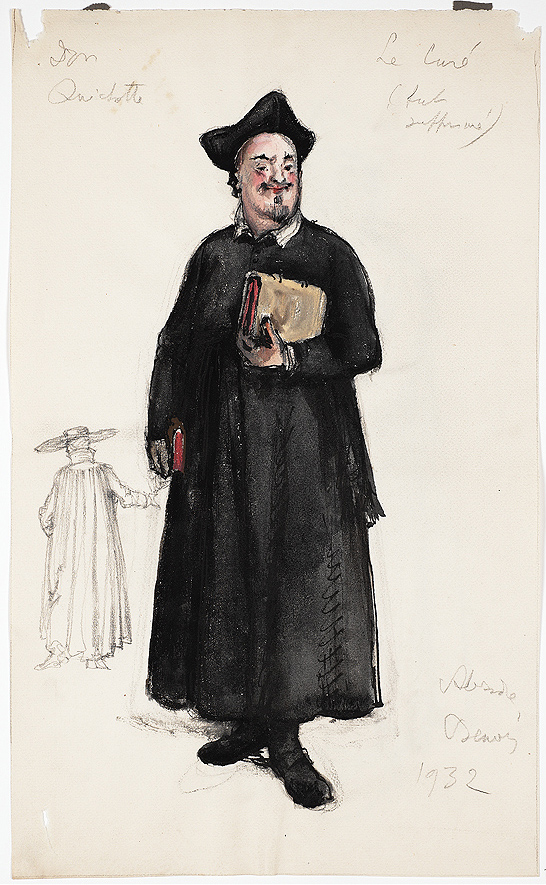 Don
Quichotte
Le Curé
supprimé)
Alexandre
Benois
1932